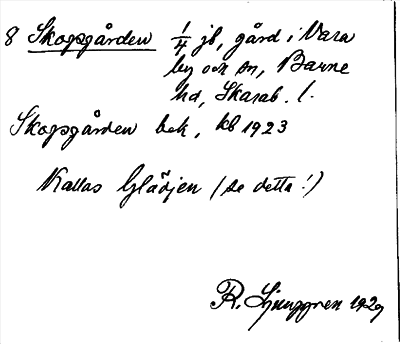 8 Skogsgården 1/4 jb, gård i Vara
by och sn, Barne
hd, Skarab. l.
Skogsgården bek, kb 1923
Kallas Glädjen (se detta!)
R. Ljunggren 1929